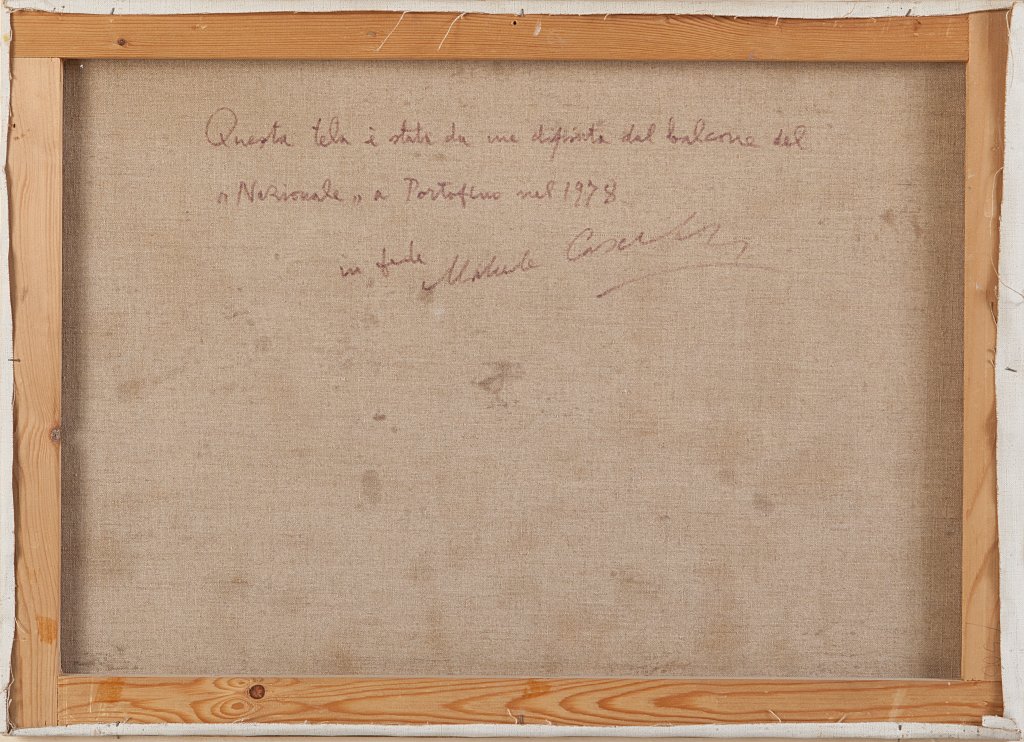 Questa tela è stata da me dipinta dal balcone del
"Nazionale" a Portofino nel 1978
in fede Michele Cascella